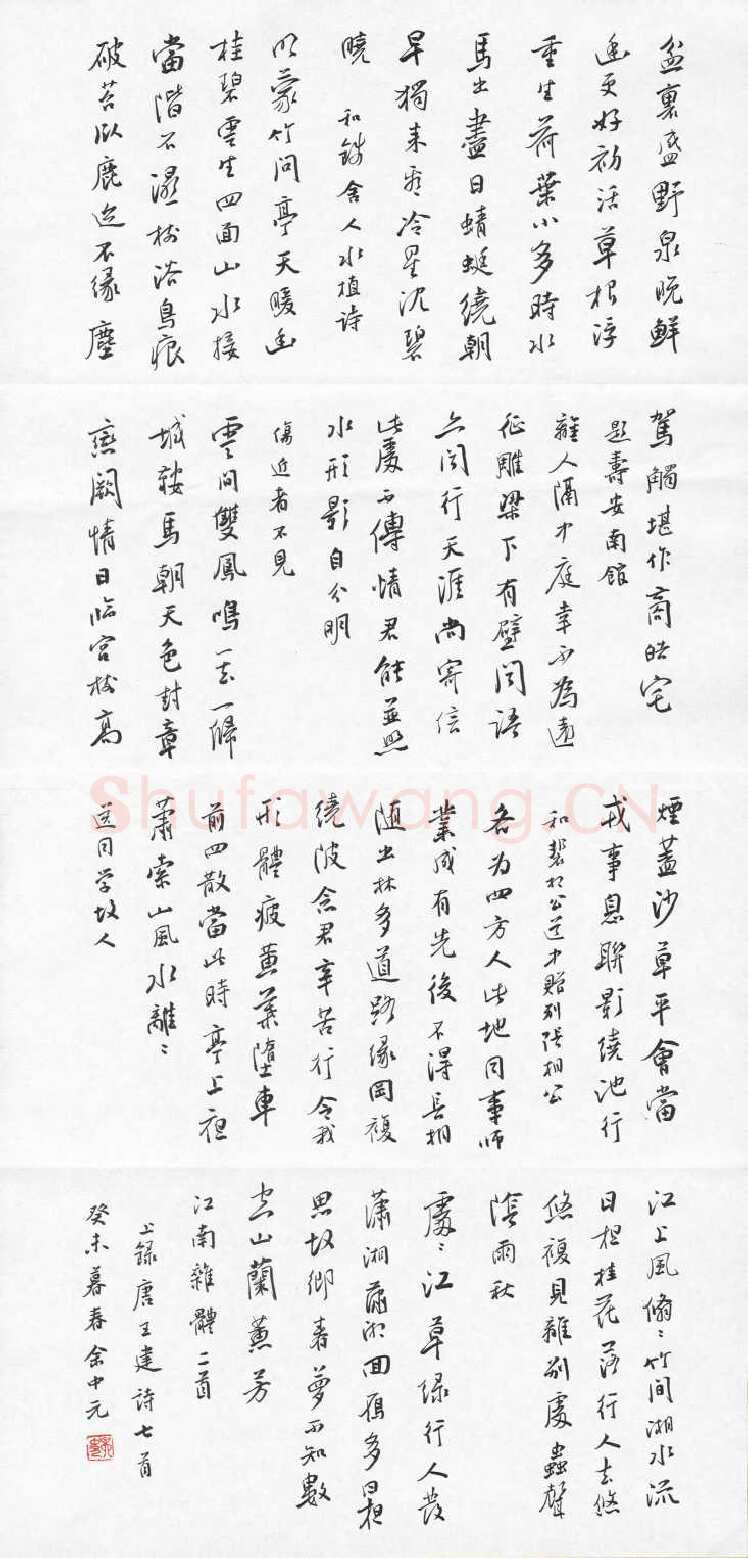 盆裏盛野泉晚鮮
幽更好初活草根浮
重生荷葉小多時水
馬出盡日蜻蜓繞朝
早獨來看冷星沈碧
曉 和錢舍人水植詩
明蒙竹間亭天暖幽
桂碧雲生四面山水接
當階石濕樹浴鳥痕
破苔臥鹿迹不緣塵
駕觸堪作商皓宅
題壽安南館
離人隔中庭幸不為遠
征雕梁下有壁聞語
亦聞行天涯尚寄信
此處不傳情君能並照
水形影自分明
傷近者不見
雲間雙鳳鳴一去一歸
城鞍馬朝天色封章
戀闕情日臨宮樹高
煙蓋沙草平會當
戎事息聯影繞池行
和裴相公道中贈別張相公
各為四方人此地同事師
業成有先後不得長相
隨出林多道路緣岡複
繞陂念君辛苦行令我
形體疲黃葉墮車
前四散當此時亭上夜
蕭索山風水離〻
送同學故人
江上風翛〻竹間湘水流
日夜桂花落行人去悠
悠複見離別處蟲聲
陰雨秋
處〻江草綠行人發
瀟湘瀟湘回雁多日夜
思故鄉春夢不知數
空山蘭蕙芳
江南雜體二首
上錄唐王建詩七首
癸未暮春余中元
Shufawang.CN